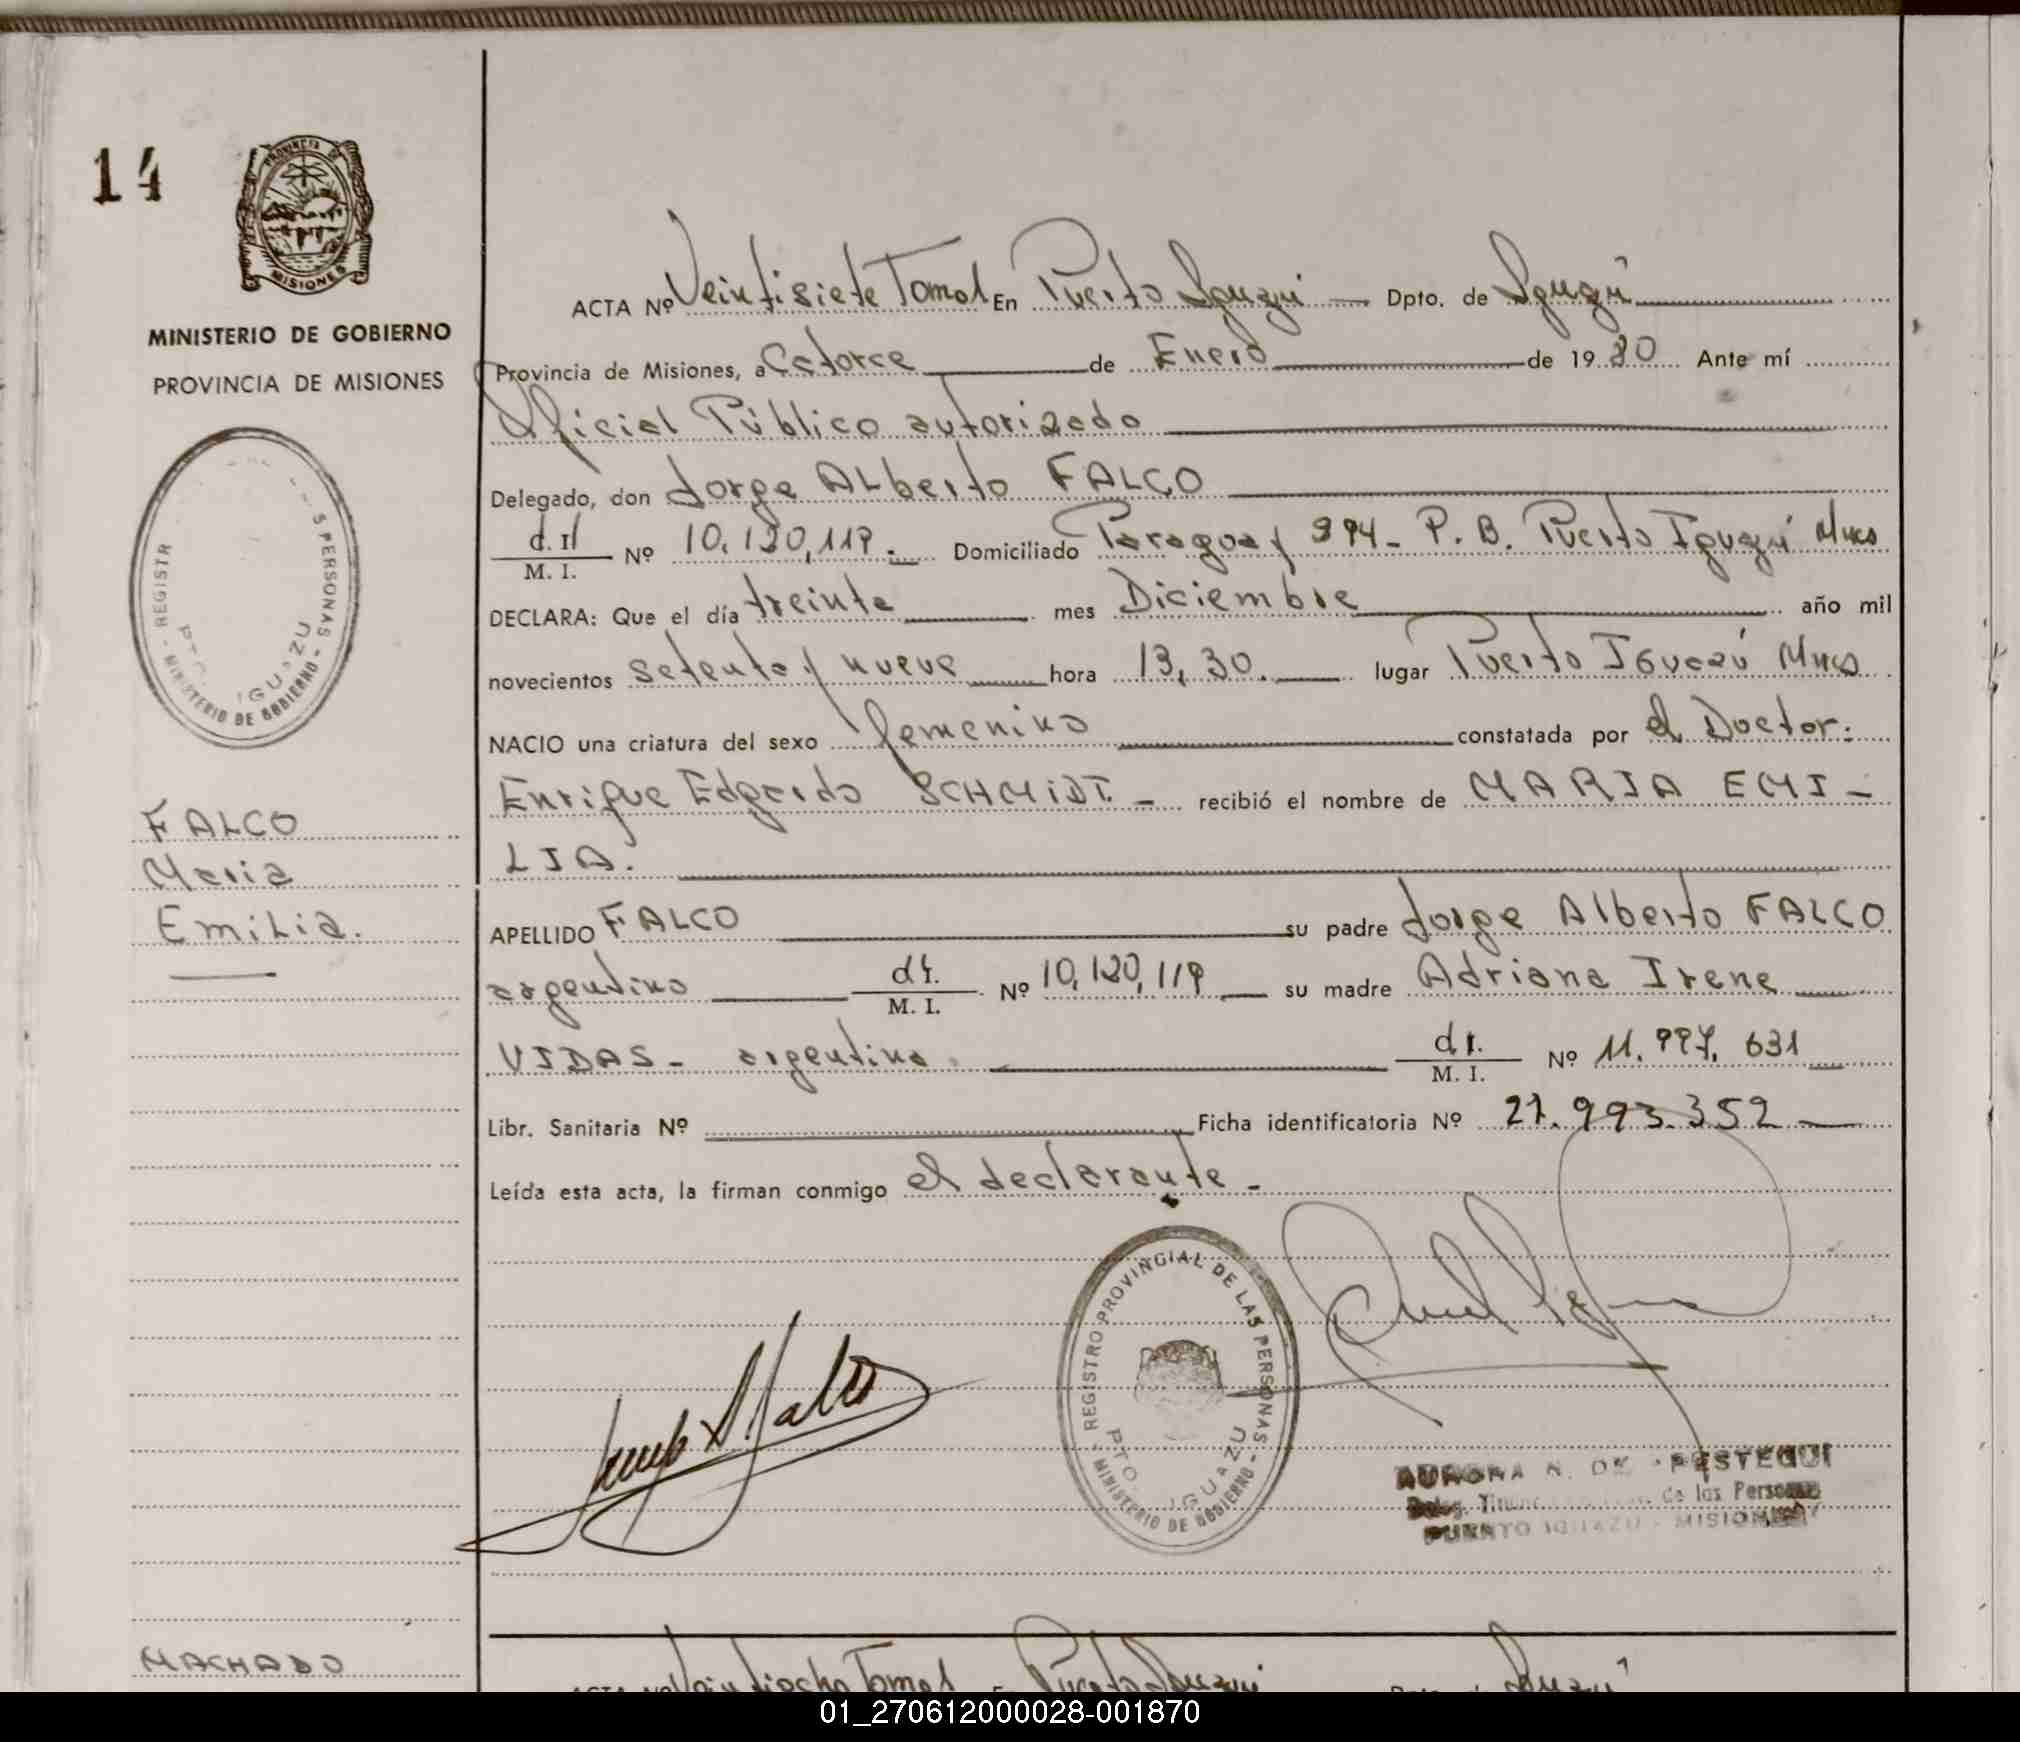 14
PROVINCIA DE
MISIONES
MINISTERIO DE GOBIERNO
PROVINCIA DE MISIONES
REGISTR S PERSONAS
PTO. IGUAZU
- MINISTERIO DE GOBIERNO -
FALCO
Maria
Emilia.
MACHADO
ACTA Nº Veintisiete Tomo I En Puerto Iguazú — Dpto. de Iguazú
Provincia de Misiones, a Catorce de Enero de 1980 Ante mí
Oficial Público autorizado
Delegado, don Jorge Alberto FALCO
d.n M. I. Nº 10.120.119. Domiciliado Paraguay 994- P.B. Puerto Iguazú Mnes
DECLARA: Que el día treinta mes Diciembre año mil
novecientos setenta y nueve hora 13,30. lugar Puerto Iguazú Mnes
NACIO una criatura del sexo femenino constatada por el Doctor:
Enrique Edgardo SCHMIDT. - recibió el nombre de MARIA EMI-
LIA.
APELLIDO FALCO su padre Jorge Alberto FALCO
argentino M. I. Nº 10.120.119 su madre Adriana Irene
VIDAS - argentina. M. I. Nº 11.997.631
Libr. Sanitaria Nº Ficha identificatoria Nº 27.993.352
Leída esta acta, la firman conmigo el declarante -
- REGISTRO PROVINCIAL DE LAS PERSONAS -
PTO. IGUAZU
MINISTERIO DE GOBIERNO
AURORA N. DE
de las Personas
PUERTO IGUAZU - MISIONES
Veintiocho Tomo I Puerto Iguazú Iguazú
01_270612000028-001870